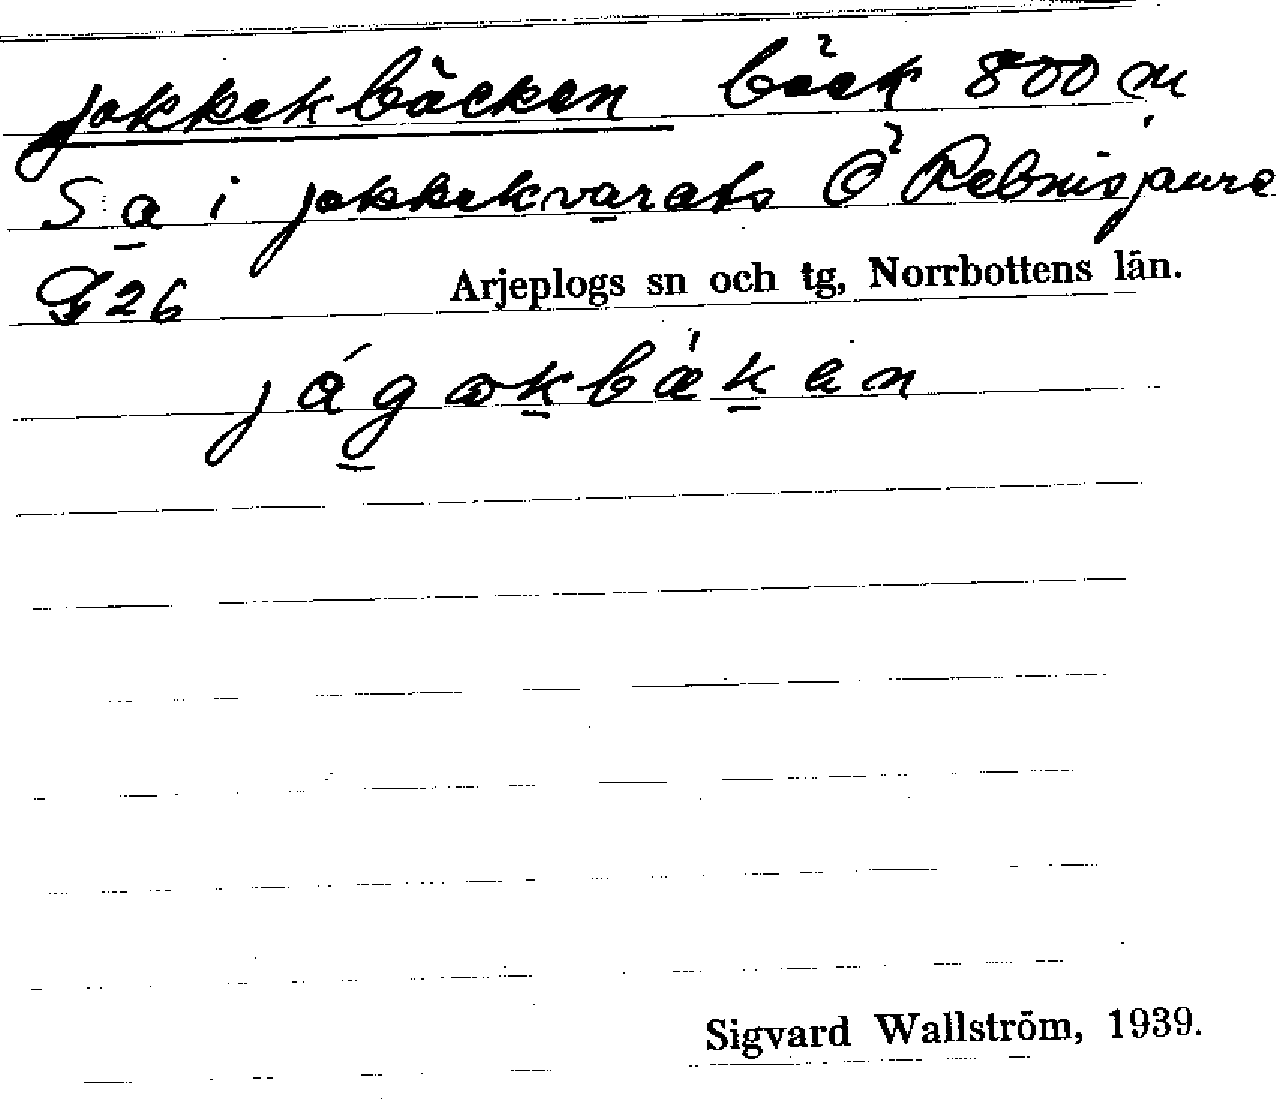 Jokkekbäcken bäck 800 m
Sa i jokkekvarats Ö Rebnisjaure
G26 Arjeplogs sn och tg, Norrbottens län.
jágakbækan
Sigvard Wallström, 1939.